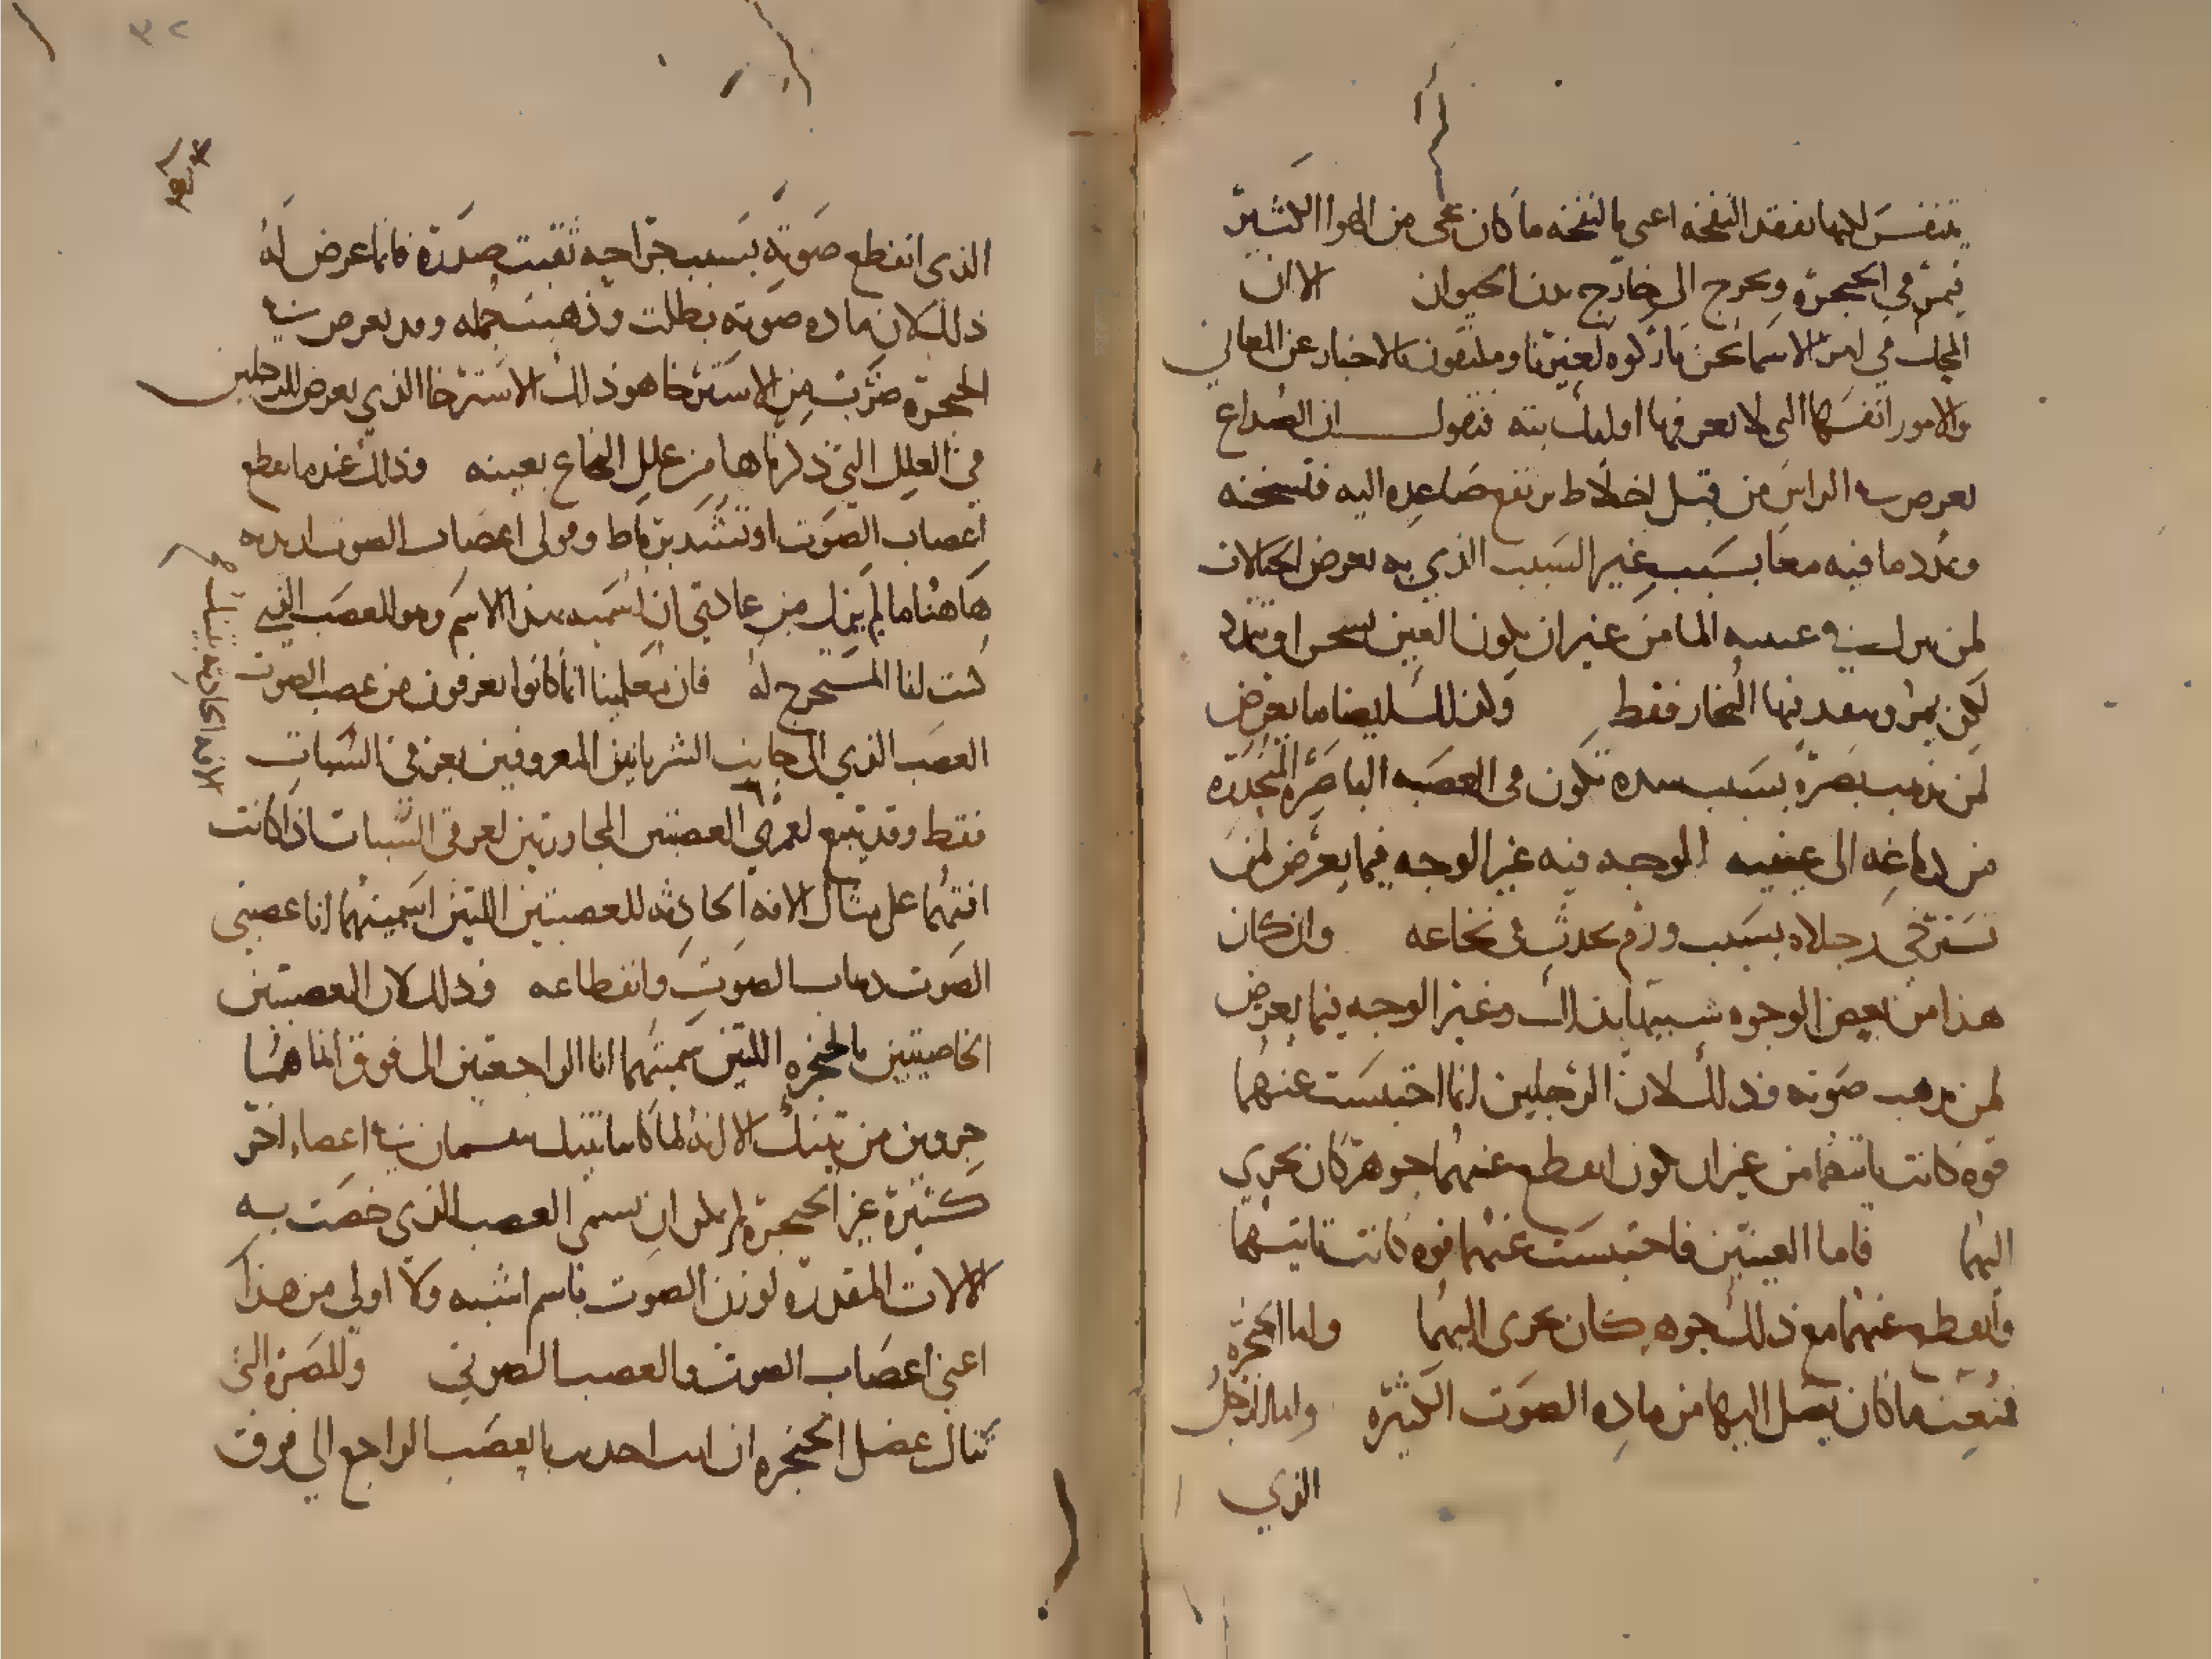 يتنفس لكيما يفقد النفخه اعني بالنفخه ما كان يجي من الهوا الكثير
فيمر في الحنجرة ويخرج الى خارج بدن الحيوان الا ان
في الاسما نحن تاركوه لغيرنا وملتقون بالاخبار عن المعاني
والامور انفسها التي لا يعرفها اوليك بته فنقول ان الصداع
يعرض في الراس من قبل اخلاط صاعده اليه فتسخنه
وتمدد ما فيه معا بسبب غير السبب الذي به يعرض الخيالات
لمن ينزل في عينيه الما من غير ان يكون العين تسخن او تمدد
لكن يمر وينفد فيها البخار فقط وكذلك ايضا ما يعرض
لمن يذهب بصره بسبب سده تكون في العصبه الباصره المنحدره
من دماغه الى عينيه الوجه فيه غير الوجه فيما يعرض لمن
تسترخي رجلاه بسبب ورم يحدث في نخاعه وان كان
هذا من بعض الوجوه شبيها بذلك وغير الوجه فيما يعرض
لمن يذهب صوته وذلك لان الرجلين انما احتبست عنهما
قوه كانت تاتيهما من غير ان يكون انقطع عنهما جوهر كان يجري
اليهما فاما العينين فاحتبست عنهما قوه كانت تاتيهما
وانقطع عنهما مع ذلك جوهر كان يجري اليهما واما الحنجرة
فمنعت ما كان يصل اليها من ماده الصوت الكثيره واما الرجل
الذي
٣٢
الذي انقطع صوته بسبب جراحه ثقبت صدره فانما عرض له
ذلك لان ماده صوته بطلت وذهبت جمله وقد يعرض في
الحنجره ضرب من الاسترخا هو ذلك الاسترخا الذي يعرض للرجلين
في العلل التي ذكرناها من علل النخاع بعينه وذلك عندما يقطع
اعصاب الصوت او تشد برباط وقولي اعصاب الصوت اريد به
هاهنا ما لم يزل من عادتي ان اسميه بهذا الاسم وهو العصب الذي
كنت انا المستخرج له فان معلمينا انما كانوا يعرفون من عصب الصوت
العصب الذي الى جانب الشريانين المعروفين بعرقي السبات
فقط وقد يتبع لعمري العصبتين المجاورتين لعرقي السبات اذا كانت
افتهما على مثال الافه الحادثه للعصبتين اللتين اسميتهما انا عصبتي
الصوت ذهاب الصوت وانقطاعه وذلك لان العصبتين
الخاصيتين بالحنجره اللتين سميتهما انا الراجعتين الى فوق انما هما
جزوين من تينك الا انه لما كانتا تينك تنقسمان في اعضاء اخر
كثيرة غير الحنجرة لم يكن ان تسمى العصب الذي خصت به
الالات المقدره لوزن الصوت باسم اشبه ولا اولي من هذا
اعني اعصاب الصوت والعصب الصوتي وللمضرة التي
تنال عضل الحنجره ان انت احدثت بالعصب الراجع الى فوق
الافه الحادثه بتينك